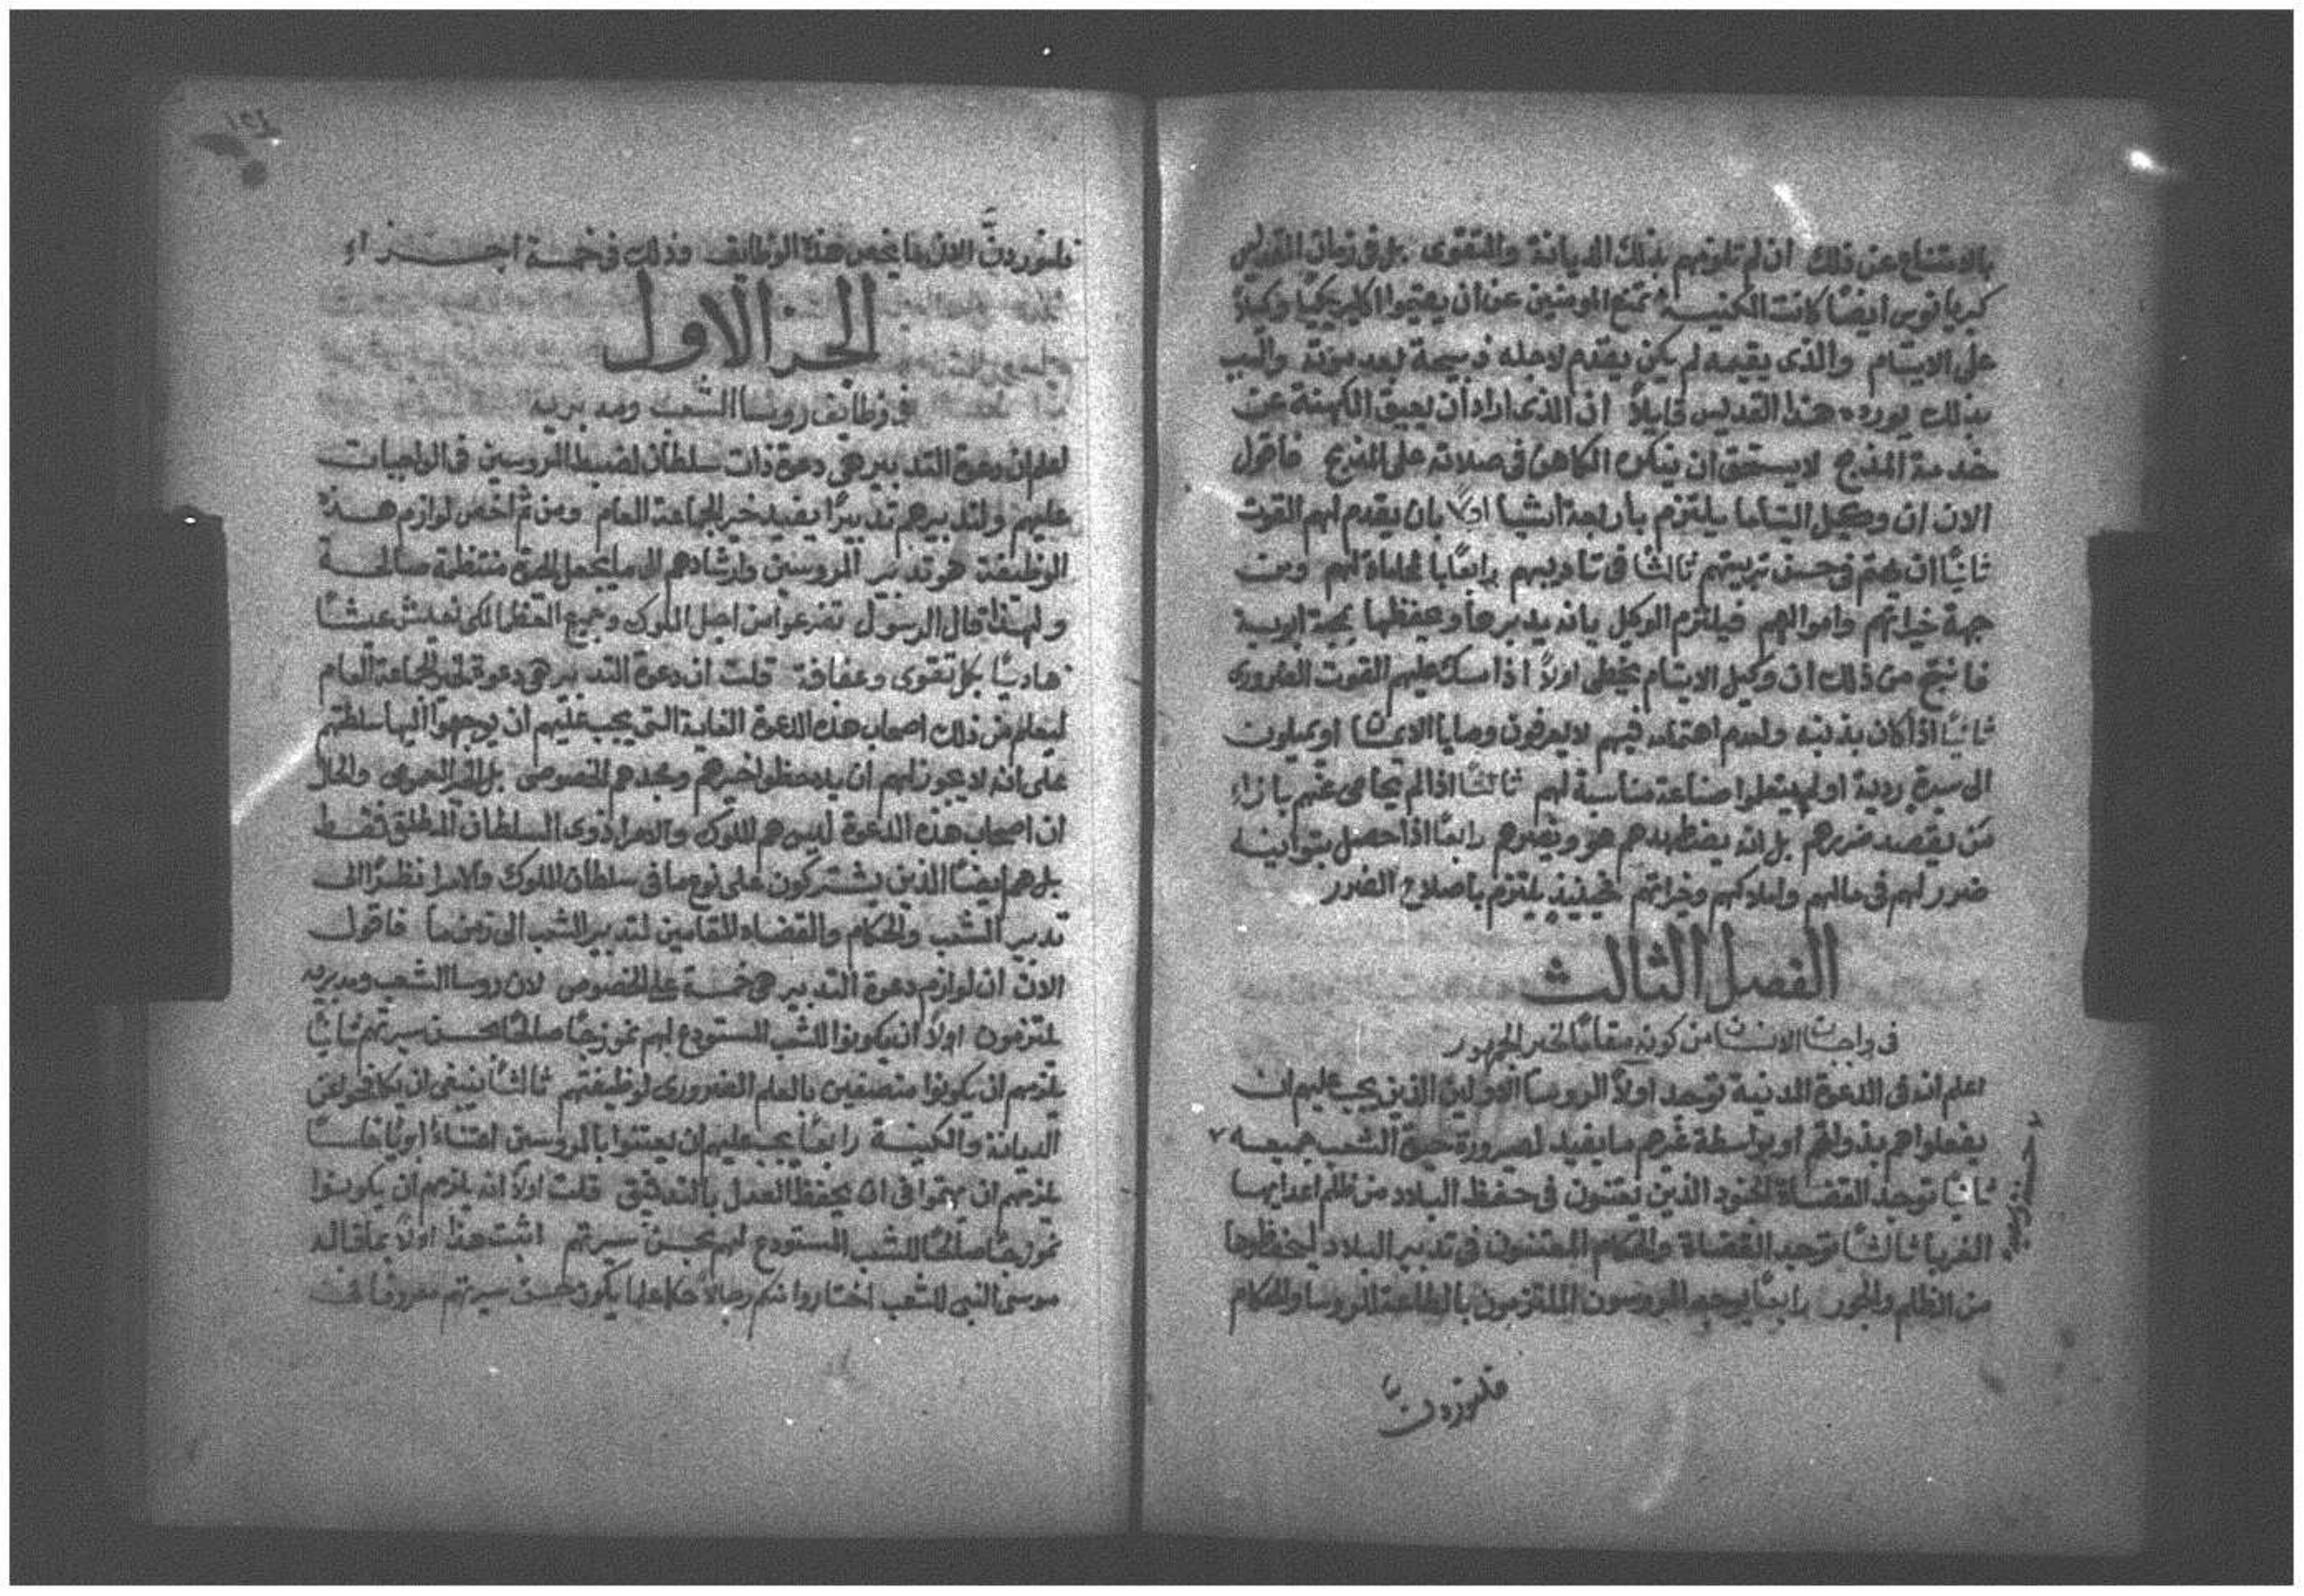 بالامتناع عن ذلك ان لم تلزمهم بذلك الديانة والتقوى بل فى زمان القديس
كبريانوس ايضًا كانت الكنيسة تمنع المومنين عن ان يقيموا اكليريكيًا وكيلاً
على الايتام والذى يقيمه لم يكن يقدم لاجله ذبيحة بعد موته والسبب
بذلك يورده هذا القديس قايلاً ان الذى اراد ان يعيق الكهنة عن
خدمة المذبح لا يستحق ان يذكره الكاهن فى صلاته على المذبح فاقول
الان ان وكيل اليتاما يلتزم بأربعة اشيا اولاً بان يقدم لهم القوت
ثانيًا ان يهتم فى حسن تربيتهم ثالثًا فى تأديبهم رابعًا بالمحاماة لهم ومن
جهة خيراتهم واموالهم فيلتزم الوكيل بانه يدبرها ويحفظها بمحبة ابوية
فانتج من ذلك ان وكيل الايتام يخطى اولاً اذا مسك عليهم القوت الضرورى
ثانيًا اذا كان بذنبه ولعدم اهتمامه فيهم لا يعرفون وصايا الايمان او يميلون
الى سيرة ردية او لم يتعلموا صناعة مناسبة لهم ثالثًا اذا لم يحامى عنهم بازاء
من يقصد ضررهم بل انه يضطهدهم هو ويضرهم رابعًا اذا حصل بتوانيه
ضرر لهم فى مالهم واملاكهم وخيراتهم فحينيذٍ يلتزم باصلاح الضرر
الفصل الثالث
فى واجبات الانسان من كونه مقامًا لخير الجمهور
اعلم انه فى الدعوة المدنية توجد اولاً الروسا الاولين الذين يجب عليهم ان
يفعلوا هم بذواتهم او بواسطة غيرهم ما يفيد لصيرورة حيوة الشعب جميعه
ثانيًا توجد القضاة الجنود الذين يعتنون فى حفظ البلاد من ظلم اعدايها
الغربا ثالثًا توجد القضاة والحكام المعتنون فى تدبير البلاد ليحفظوها
من الظلم والجور رابعًا يوجد المروسون الملتزمون بالطاعة للروسا والحكام
فلنوردنَّ
١٣٤
فلنوردنَّ الان ما يخص هذه الوظايف وذلك فى خمسة اجزاء
الجز الاول
فى وظايف روسا الشعب ومدبريه
اعلم ان دعوة التدبير هى دعوة ذات سلطان لضبط المروسين فى الواجبات
عليهم ولتدبيرهم تدبيرًا يفيد خير الجماعة العام ومن ثم اخص لوازم هذه
الوظيفة هو تدبير المروسين وارشادهم الى ما يجعل الحيوة منتظمة صالحة
ولهذا قال الرسول تضرعوا من اجل الملوك وجميع العظما لكى نعيش عيشًا
هاديًا بكل تقوى وعفافة قلت ان دعوة التدبير هى دعوة لخير الجماعة العام
ليعلم من ذلك اصحاب هذه الدعوة الغاية التى يجب عليهم ان يوجهوا اليها سلطتهم
على انه لا يجوز لهم ان يلاحظوا خيرهم ومجدهم الخصوصى بل الخير العمومى والحال
ان اصحاب هذه الدعوة ليس هم الملوك والامرا ذوى السلطان المطلق فقط
بل هم ايضًا الذين يشتركون على نوع ما فى سلطان الملوك والامرا نظرًا الى
تدبير الشعب والحكام والقضاه المقامين لتدبير الشعب الى زمن ما فاقول
الان ان لوازم دعوة التدبير هى خمسة على الخصوص لان روسا الشعب ومدبريه
يلتزمون اولاً ان يكونوا للشعب المستودع لهم نموذجًا صالحًا بحسن سيرتهم ثانيًا
يلزمهم ان يكونوا متصفين بالعلم الضرورى لوظيفتهم ثالثًا ينبغى ان يكافحوا عن
الديانة والكنيسة رابعًا يجب عليهم ان يعتنوا بالمروسين اعتناءً ابويًا خامسًا
يلزمهم ان يهتموا فى ان يحفظ العدل بالتدقيق قلت اولاً انه يلزمهم ان يكونوا
نموذجًا صالحًا للشعب المستودع لهم بحسن سيرتهم اثبت هذا اولاً بما قاله
موسى النبى للشعب اختاروا منكم رجالاً حكما يكون حسن سيرتهم معروفًا